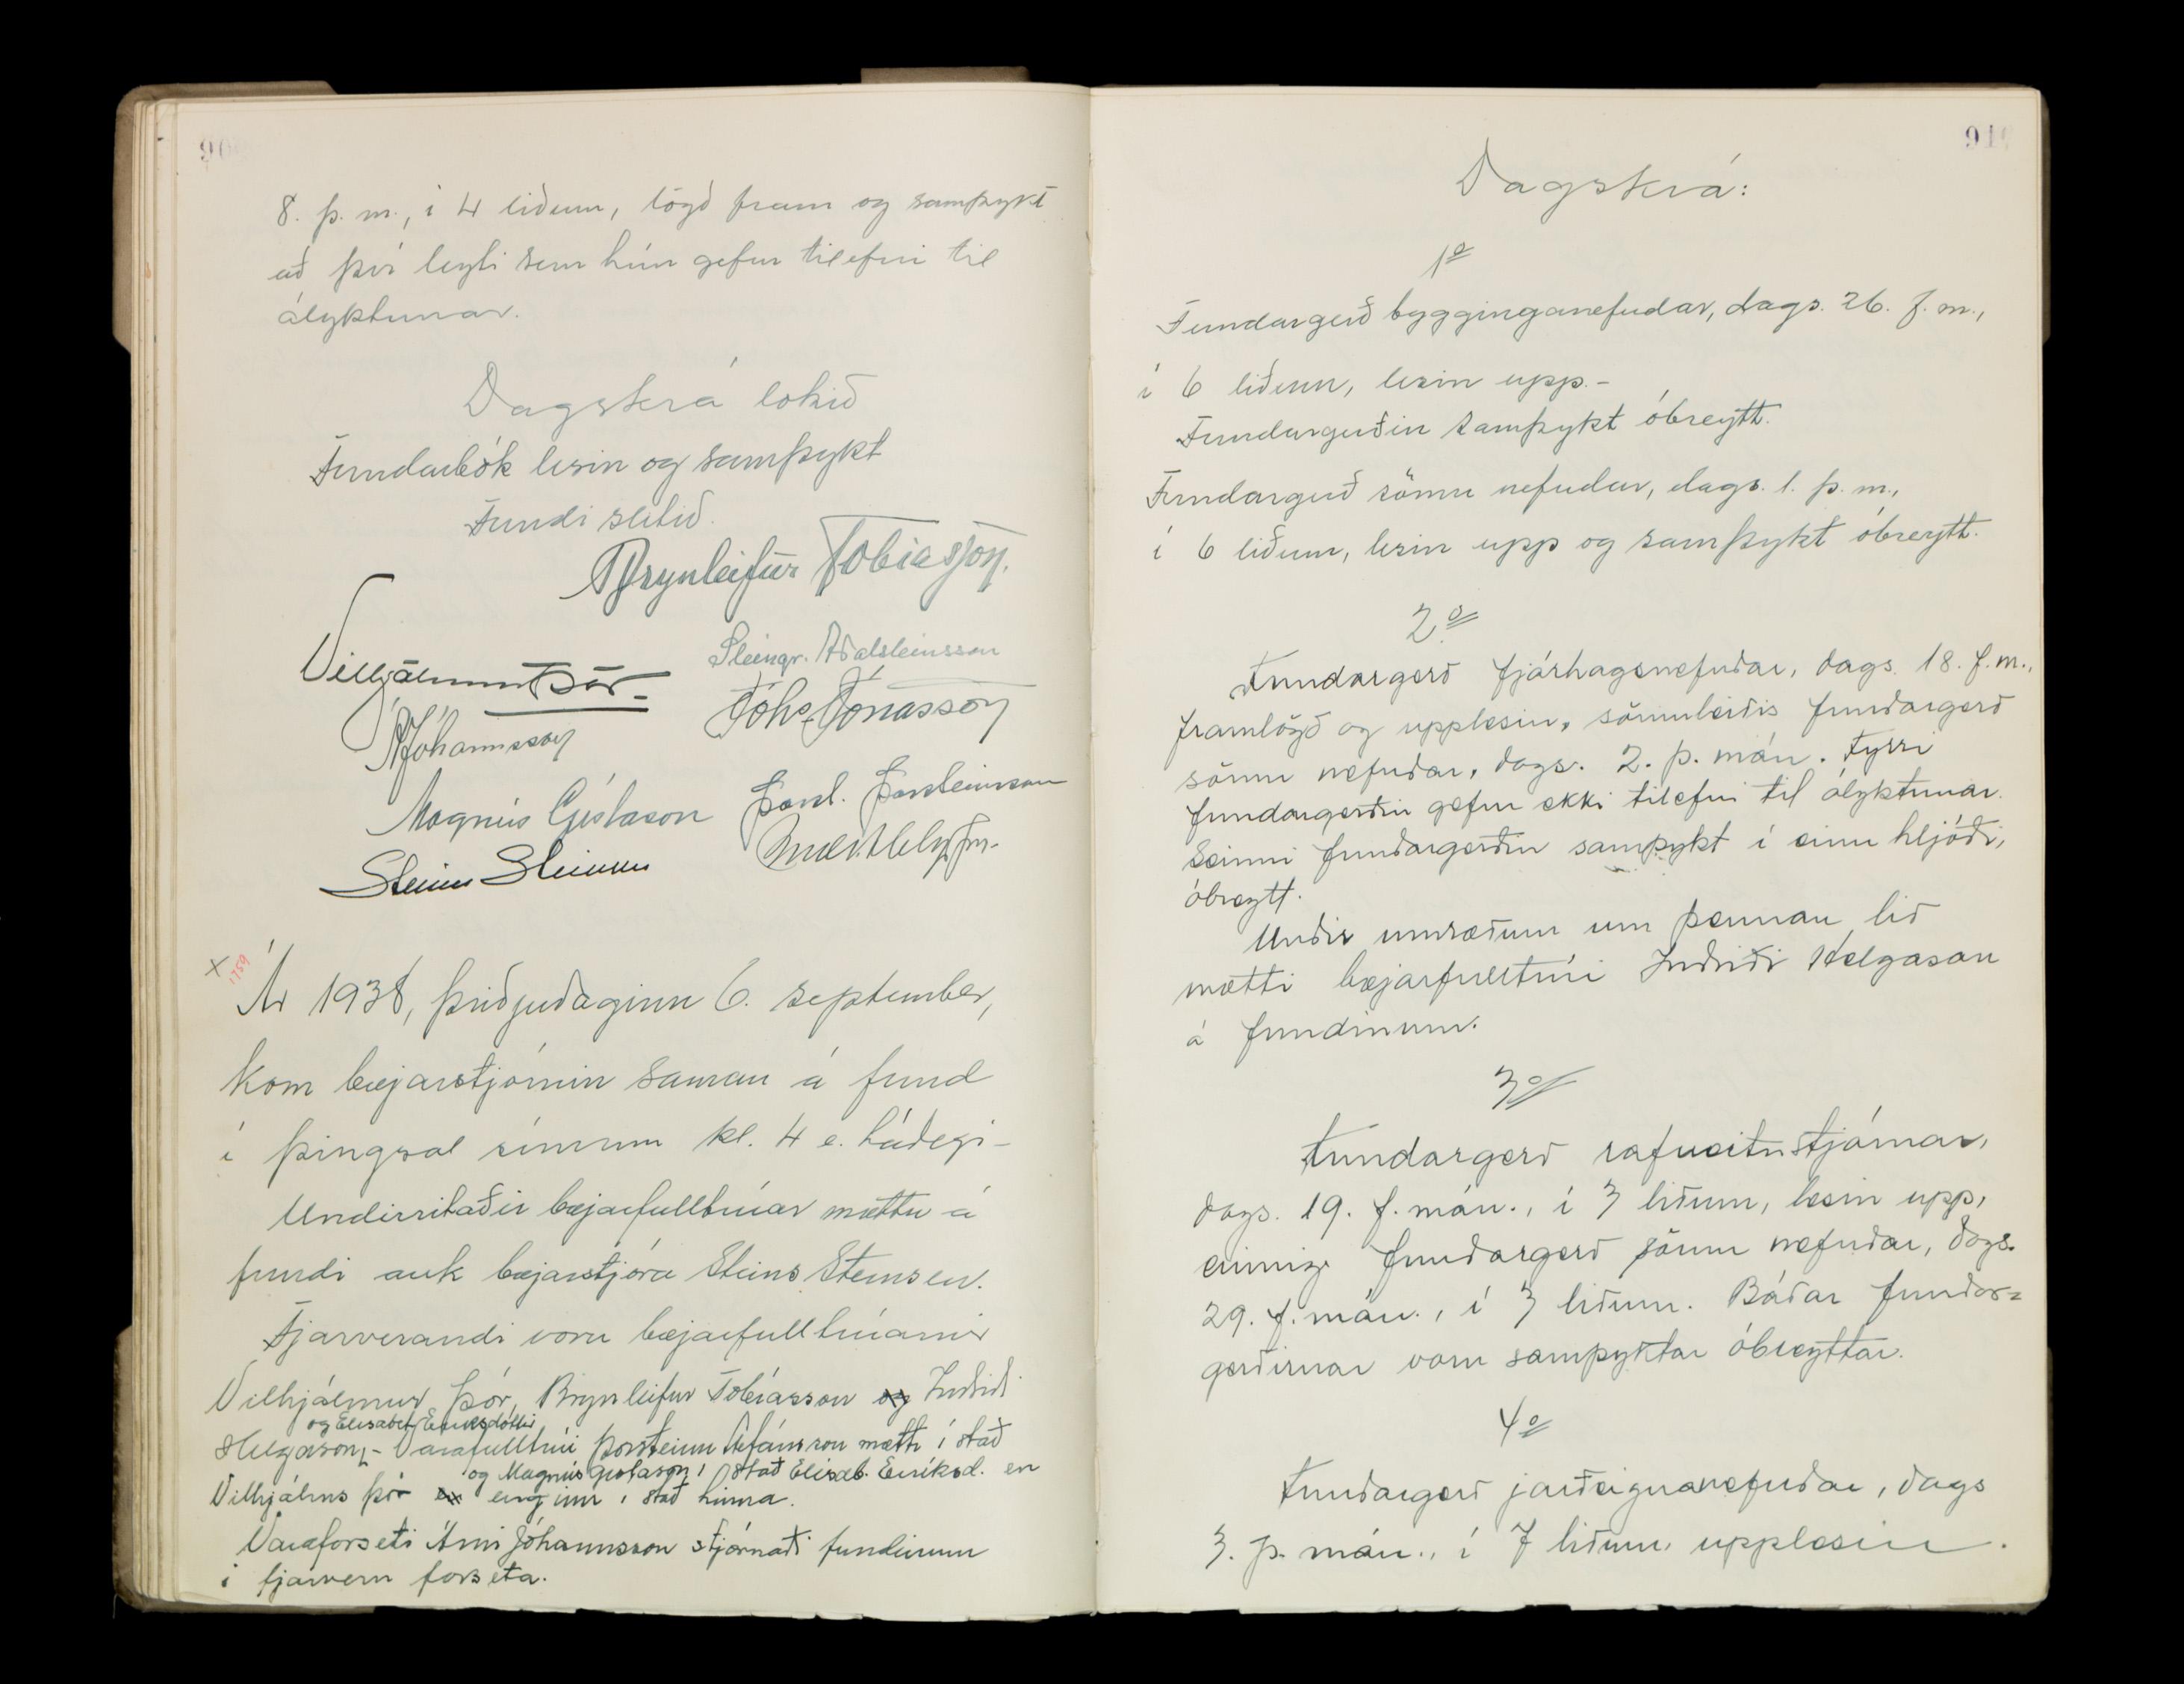 90
8. þ. m., í 4 liðum, lögð fram og samþykt
að því leyti sem hún gefur tilefni til
ályktunar.
Dagskrá lokið
Fundarbók lesin og samþykt
Fundi slitið.
Brynleifur Tobiasson.
Vilhjálmur Þór
Steingr. Aðalsteinsson
Á Jóhannsson
Jóhs. Jónasson
Magnús Gíslason
Þorst. Þorsteinsson
Steinn Steinsen
x 1759
Ár 1938, þriðjudaginn 6. september,
kom bæjarstjórnin saman á fund
í þingsal sínum kl. 4 e. hádegi -
Undirritaðir bæjarfulltrúar mættu á
fundi auk bæjarstjóra Steins Steinsen.
Fjarverandi voru bæjarfulltrúarnir
Vilhjálmur Þór, Brynleifur Tobíasson og Indriði
og Elisabet Eiríksdóttir
Helgason, - Varafulltrúi Þorsteinn Stefánsson mætti í stað
og Magnús Gíslason í stað Elísab. Eiríksd. en
Vilhjálms Þór en enginn í stað hinna.
Varaforseti Árni Jóhannsson stjórnaði fundinum
í fjarveru forseta.
91
Dagskrá:
1o
Fundargerð bygginganefndar, dags. 26. f. m.,
í 6 liðum, lesin upp. -
Fundargerðin samþykt óbreytt.
Fundargerð sömu nefndar, dags. 1. þ. m.,
í 6 liðum, lesin upp og samþykt óbreytt.
2o
Fundargerð fjárhagsnefndar, dags. 18. f. m.,
framlögð og upplesin, sömuleiðis fundargerð
sömu nefndar, dags. 2. þ. mán. Fyrri
fundargerðin gefur ekki tilefni til ályktunar.
Seinni fundargerðin samþykt í einu hljóði,
óbreytt.
Undir umræðum um þennan lið
mætti bæjarfulltrúi Indriði Helgason
á fundinum.
3o
Fundargerð rafveitustjórnar,
dags. 19. f. mán., í 3 liðum, lesin upp,
einnig fundargerð sömu nefndar, dags.
29. f. mán., í 3 liðum. Báðar fundar=
gerðirnar voru samþyktar óbreyttar.
4o
Fundargerð jarðeignanefndar, dags
3. þ. mán., í 7 liðum, upplesin.